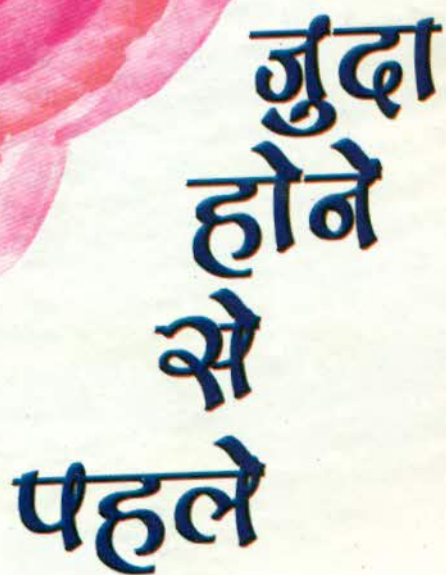 जुदा
होने
से
पहले